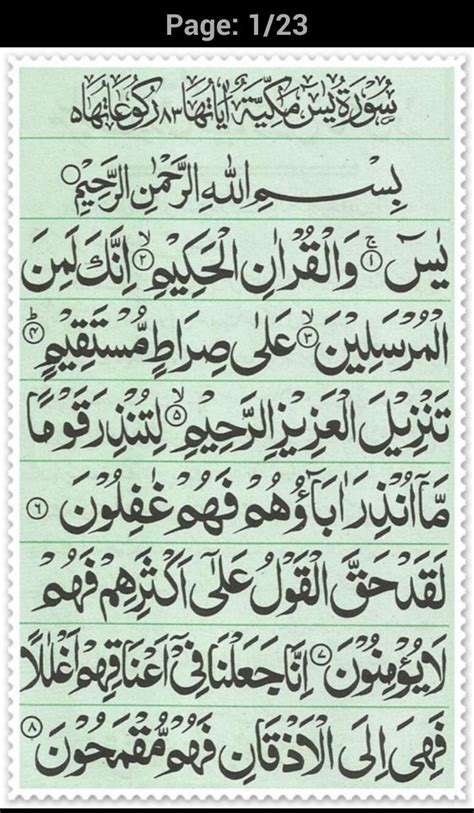 Page: 1/23
سُوْرَةُ يٰسٓ مَكِّيَّةٌ اٰيَاتُهَا ٨٣ رُكُوْعَاتُهَا ٥
بِسْمِ اللهِ الرَّحْمٰنِ الرَّحِيْمِ
يٰسٓ ۚ ﴿١﴾ وَالْقُرْاٰنِ الْحَكِيْمِ ۙ ﴿٢﴾ اِنَّكَ لَمِنَ
الْمُرْسَلِيْنَ ۙ ﴿٣﴾ عَلٰى صِرَاطٍ مُّسْتَقِيْمٍ ؕ ﴿٤﴾
تَنْزِيْلَ الْعَزِيْزِ الرَّحِيْمِ ۙ ﴿٥﴾ لِتُنْذِرَ قَوْمًا
مَّاۤ اُنْذِرَ اٰبَآؤُهُمْ فَهُمْ غٰفِلُوْنَ ﴿٦﴾
لَقَدْ حَقَّ الْقَوْلُ عَلٰۤى اَكْثَرِهِمْ فَهُمْ
لَا يُؤْمِنُوْنَ ﴿٧﴾ اِنَّا جَعَلْنَا فِيْۤ اَعْنَاقِهِمْ اَغْلٰلًا
فَهِيَ اِلَى الْاَذْقَانِ فَهُمْ مُّقْمَحُوْنَ ﴿٨﴾